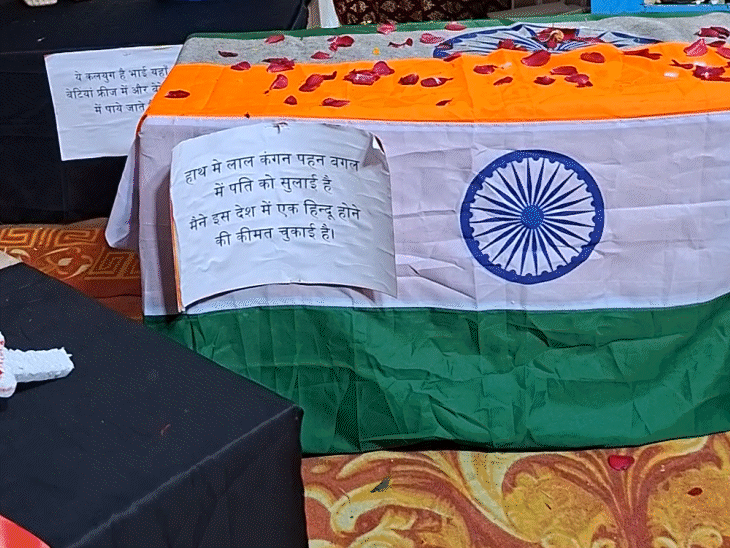 ये कलयुग है भाई यहाँ
बेटियां फ्रीज में और
में पाये जाते
हाथ मे लाल कंगन पहन बगल
में पति को सुलाई है
मैने इस देश में एक हिन्दू होने
की कीमत चुकाई है।